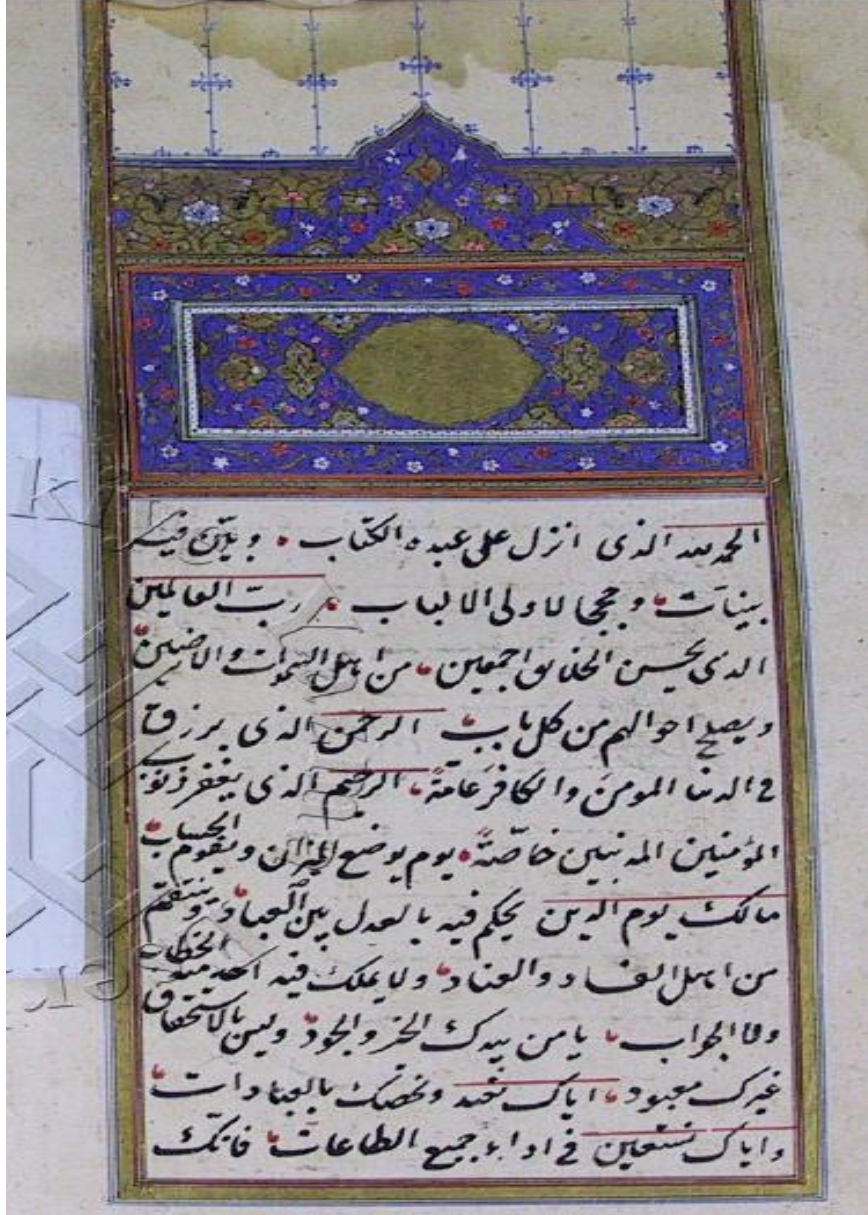 الحمد لله الذى انزل على عبده الكتاب ، و بيّن فيه
بينات ، و حججا لاولى الالباب ، ربّ العالمين
الذى يحسن الخلايق اجمعين ، من اهل السموات و الارضين
و يصلح احوالهم من كل باب ، الرحمن الذى يرزق
فى الدنيا المومن و الكافر عامّةً ، الرحيم الذى يغفر ذنوب
المؤمنين المذنبين خاصّةً ، يوم يوضع الميزان و يقوم الحساب
مالك يوم الدين يحكم فيه بالعدل بين العباد ، و ينتقم
من اهل الفساد و العناد ، و لا يملك فيه احد منه الخطاب
و لا الجواب ، يا من بيدك الخير و الجود ، و ليس بالاستحقاق
غيرك معبود ، اياك نعبد و نخصك بالعبادات ،
و اياك نستعين فى اداء جميع الطاعات ، فانّك